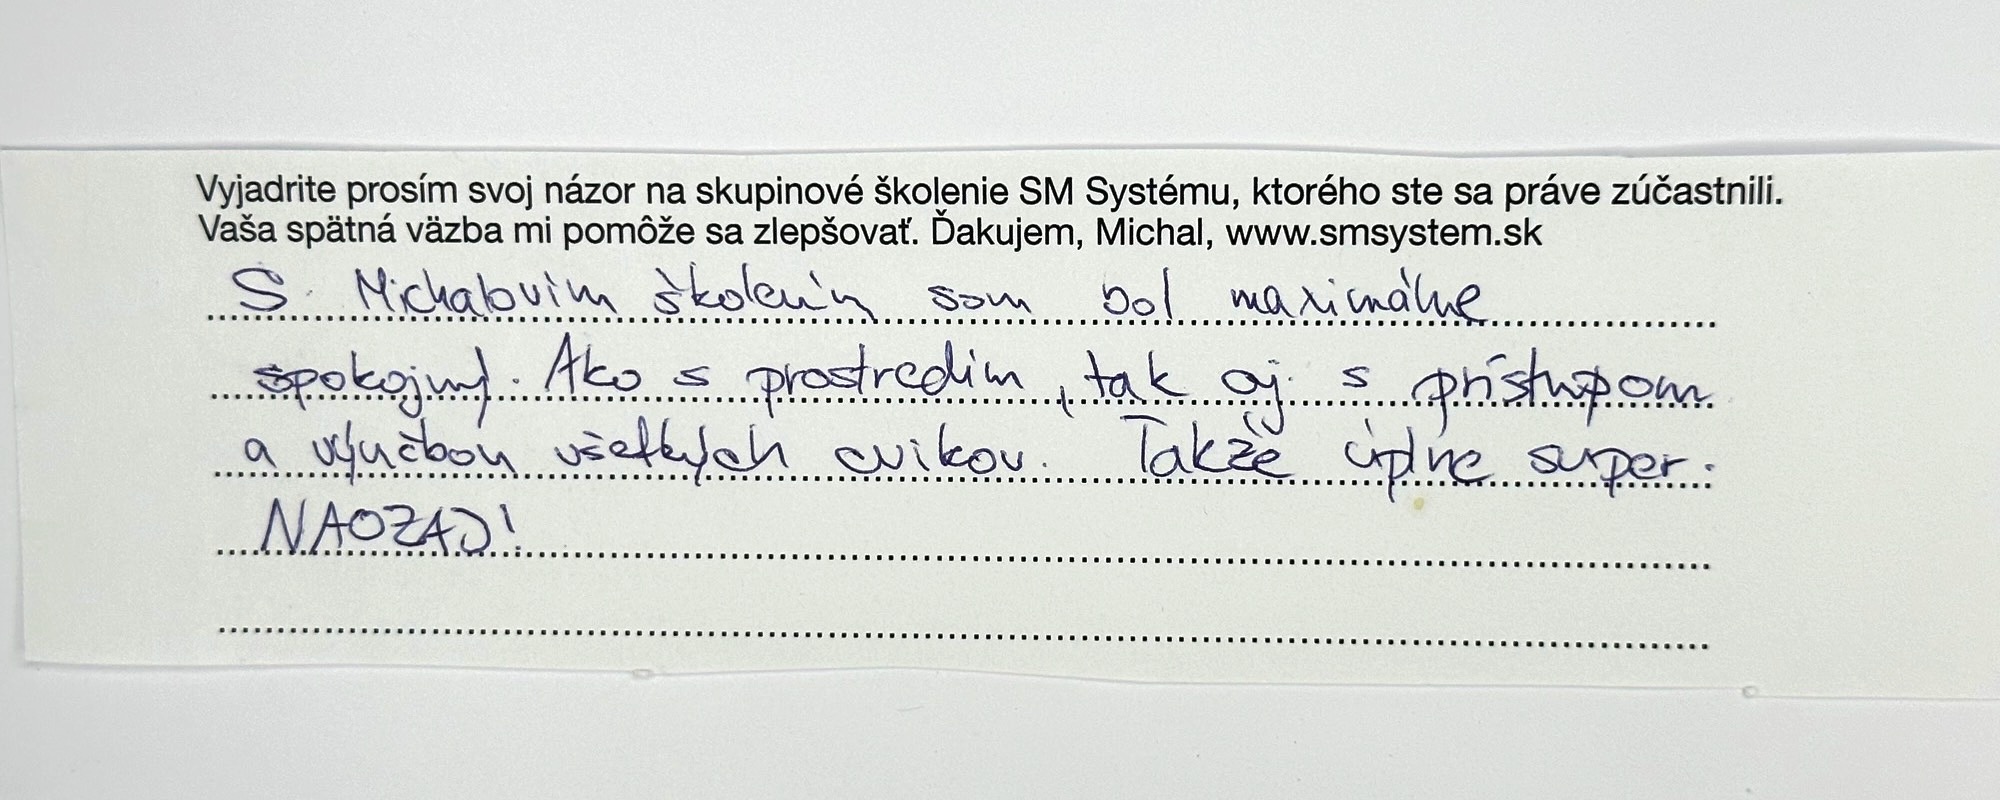 Vyjadrite prosím svoj názor na skupinové školenie SM Systému, ktorého ste sa práve zúčastnili.
Vaša spätná väzba mi pomôže sa zlepšovať. Ďakujem, Michal, www.smsystem.sk
S Michalovim školením som bol maximálne
spokojný. Ako s prostredím, tak aj s prístupom
a výučbou všetkých cvikov. Takže úplne super.
NAOZAJ!